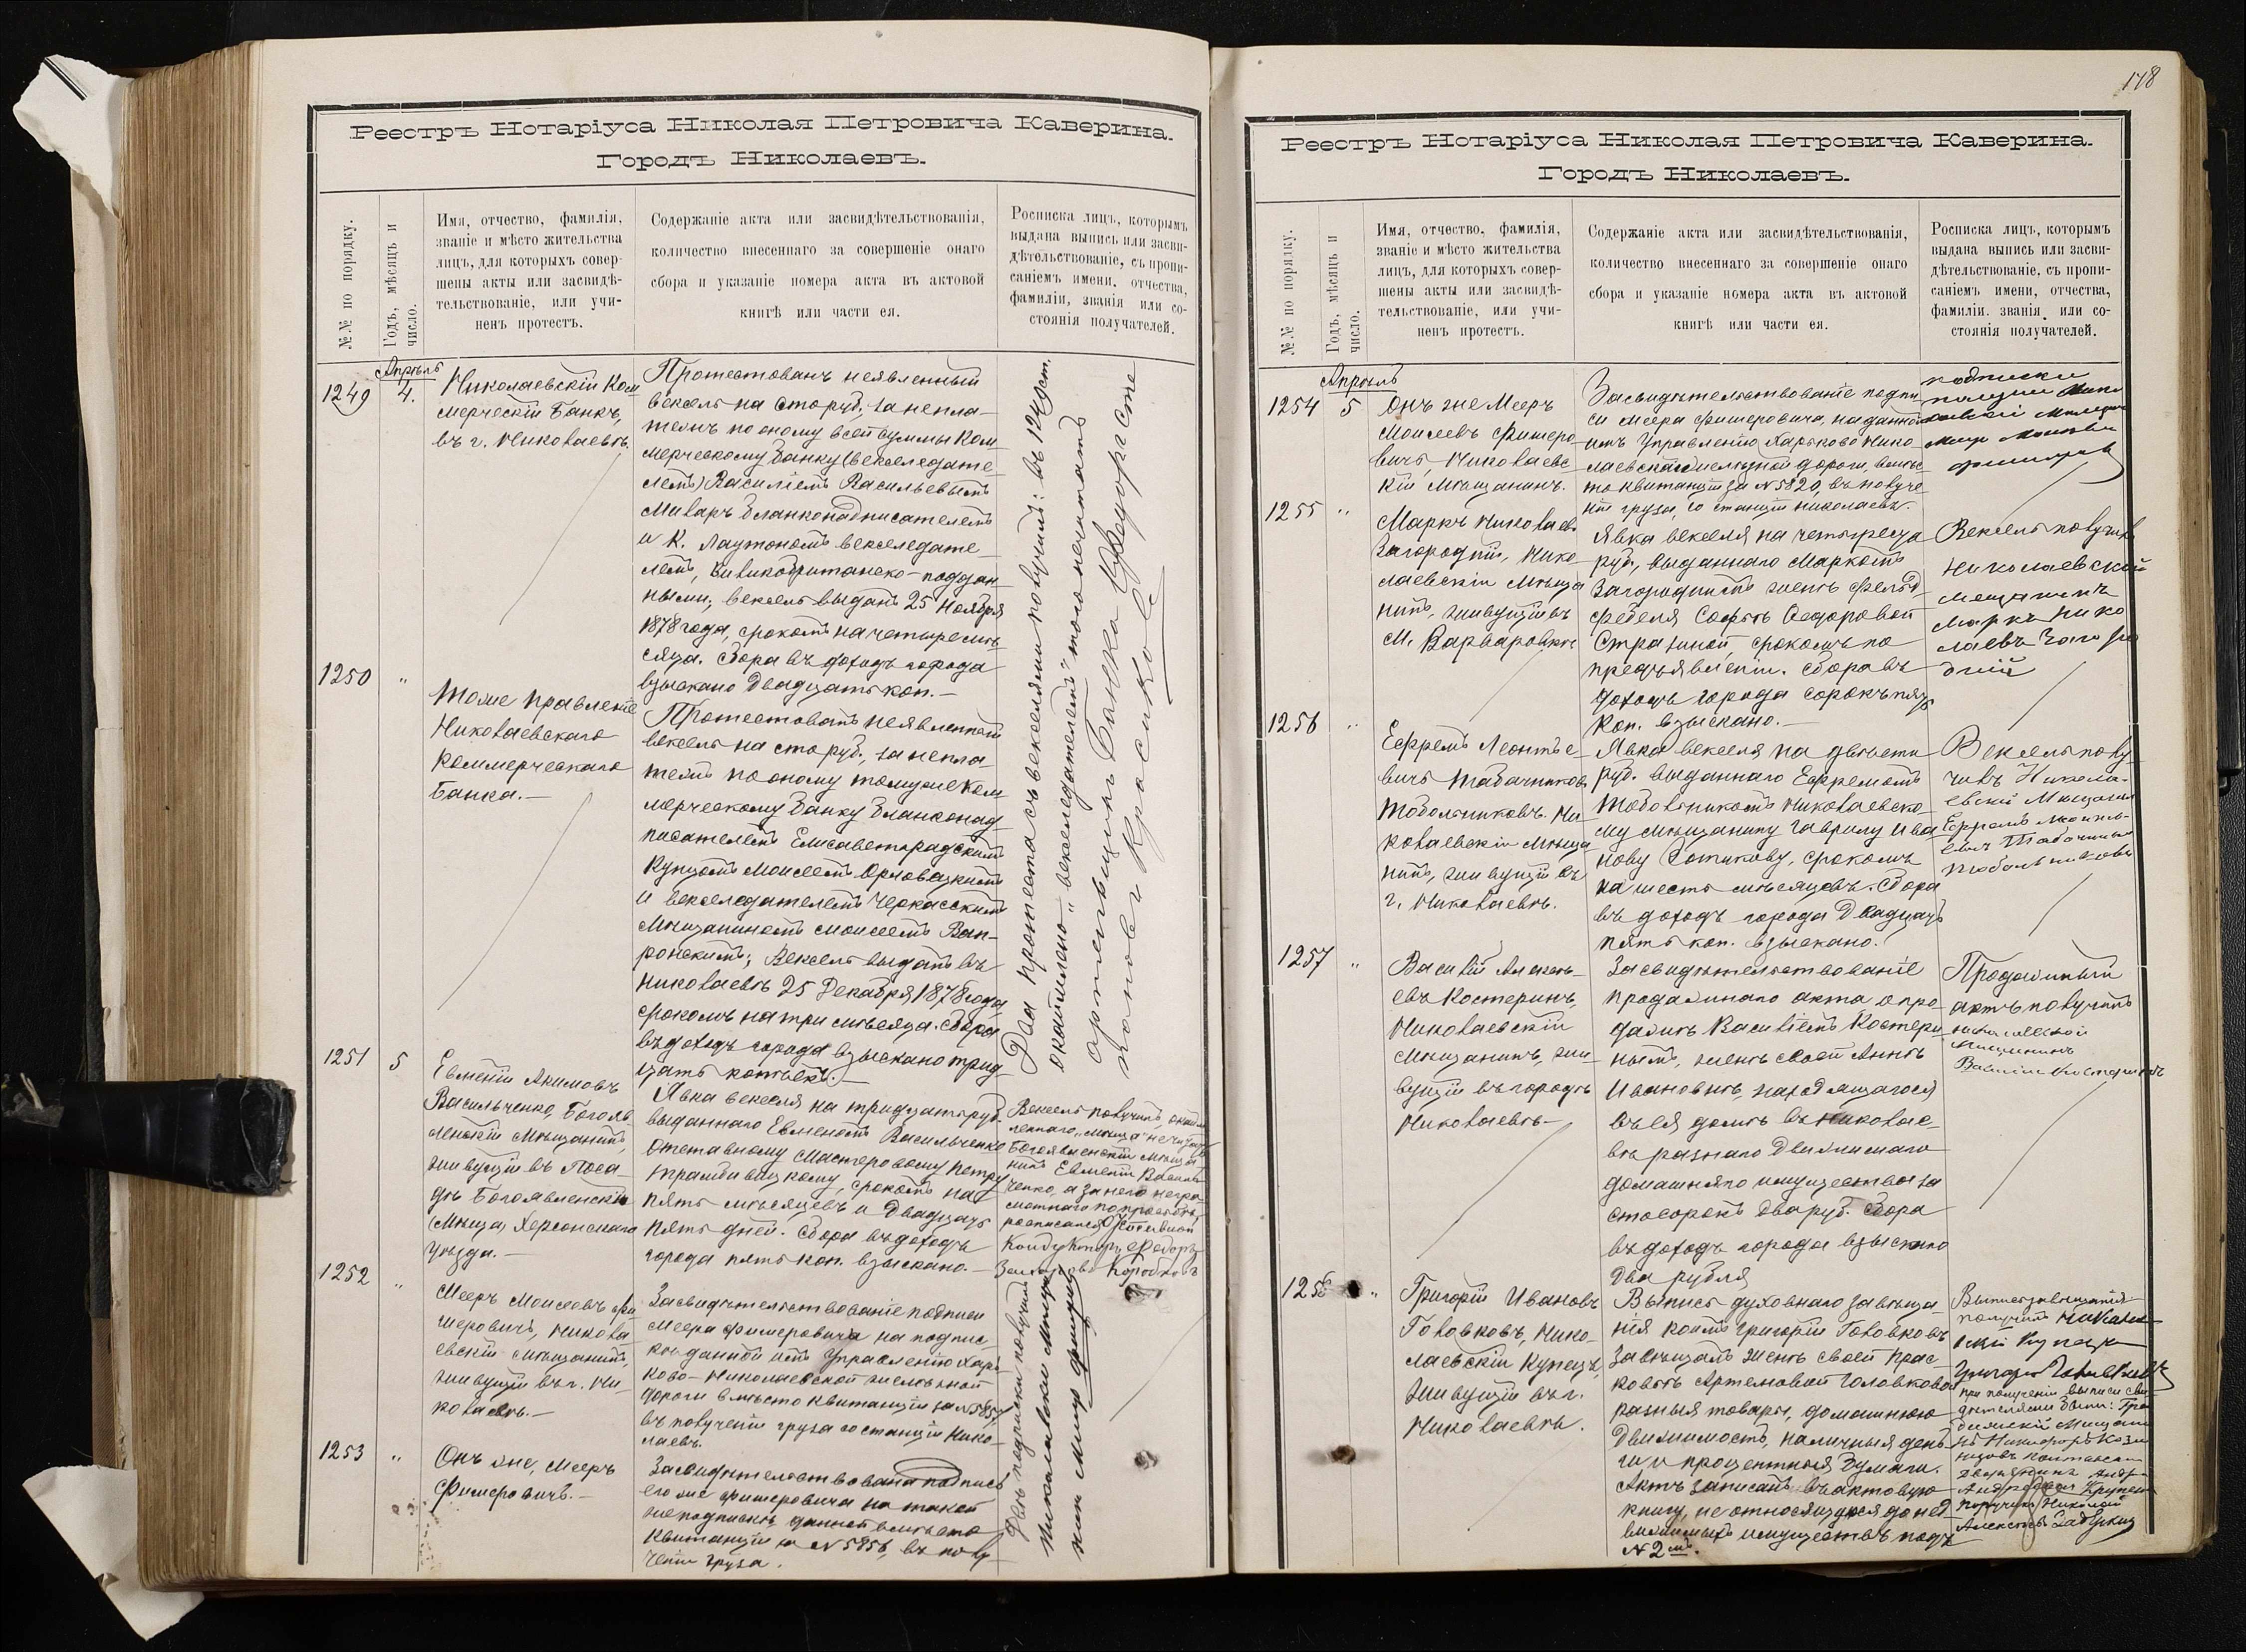 Реестръ Нотаріуса Николая Петровича Каверина.
Городъ Николаевъ.
№№ по порядку.
Годъ, мѣсяцъ и
число.
Имя, отчество, фамилія,
званіе и мѣсто жительства
лицъ, для которыхъ совер-
шены акты или засвидѣ-
тельствованіе, или учи-
ненъ протестъ.
Содержаніе акта или засвидѣтельствованія,
количество внесеннаго за совершеніе онаго
сбора и указаніе номера акта въ актовой
книгѣ или части ея.
Росписка лицъ, которымъ
выдана выпись или засви-
дѣтельствованіе, съ пропи-
саніемъ имени, отчества,
фамиліи, званія или со-
стоянія получателей.
1249
Апрѣль
4.
Николаевскій Ком
мерческій Банкъ,
въ г. Николаевѣ.
Протестованъ неявленный
вексель на сто руб., за непла-
тежъ по оному всей суммы Ком
мерческому Банку (векселедате
лемъ) Василіемъ Васильевымъ
Миваръ бланконадписателемъ
и К. Лаутономъ векселедате-
лемъ, Великобританско-поддан
ными; вексель выданъ 25 Ноября
1878 года, срокомъ на четыре мѣ
сяца. Сбора въ доходъ города
взыскано Двадцать коп.-
1250
"
Тоже Правленіе
Николаевскаго
Коммерческаго
Банка.-
Протестованъ неявленный
вексель на сто руб., за непла
тежъ по оному томуже Ком
мерческому Банку бланконад
писателемъ Елисаветградскимъ
Купцомъ Моисеемъ Орловецкимъ
и векселедателемъ Черкасскимъ
Мѣщаниномъ Моисеемъ Вап-
ронскимъ; Вексель выданъ въ
Николаевѣ 25 Декабря 1878 года
срокомъ на три мѣсяца. Сбора
въ доходъ города взыскано трид-
цать копѣекъ.-
Два протеста съ векселями получилъ: въ 12 й ст.
окаймлено „векселедателемъ" того нечитать
артельщикъ Банка
Красиковъ
1251
5
Евмений Акимовъ
Васильченко, Богояв
ленскій Мѣщанинъ,
живущій въ Поса-
дѣ Богоявленскѣ
(Мѣща) Херсонскаго
Уѣзда.-
Явка векселя на тридцать руб.
выданнаго Евмениемъ Васильченко
отставному Мастеровому Петру
срокомъ на
пять мѣсяцевъ и двадцать
пять дней. Сбора въ доходъ
города пять коп. взыскано.-
Вексель получилъ, окайм
леннаго „Мѣща" нечитать
Богоявленскій Мѣща-
нинъ Евмений Василь
ченко, а за него негра-
мотнаго по просьбѣ
росписался Отставной
Кондукторъ Федоръ
Коробковъ
1252
"
Мееръ Моисеевъ Фи
шеровичъ, Никола
евскій мѣщанинъ,
живущій въ г. Ни-
колаевѣ.-
Засвидѣтельствованіе подписи
Меера Фишеровича на подпис
кѣ данной имъ Управленію Харь
ково-Николаевской желѣзной
дороги вмѣсто квитанціи за № 5857
въ полученіи груза со станціи Нико-
лаевъ.
Двѣ подписки получилъ
Николаевскій Мѣща
нин Меер Фишерович
1253
"
Онъ же, Мееръ
Фишеровичъ.-
Засвидѣтельствована подпись
его же Фишеровича на такой
же подпискѣ, данной вмѣсто
квитанціи за № 5856, въ полу
ченіи груза.
178
Реестръ Нотаріуса Николая Петровича Каверина.
Городъ Николаевъ.
№№ по порядку.
Годъ, мѣсяцъ и
число.
Имя, отчество, фамилія,
званіе и мѣсто жительства
лицъ, для которыхъ совер-
шены акты или засвидѣ-
тельствованіе, или учи-
ненъ протестъ.
Содержаніе акта или засвидѣтельствованія,
количество внесеннаго за совершеніе онаго
сбора и указаніе номера акта въ актовой
книгѣ или части ея.
Росписка лицъ, которымъ
выдана выпись или засви-
дѣтельствованіе, съ пропи-
саніемъ имени, отчества,
фамиліи. званія или со-
стоянія получателей.
1254
Апрѣль
5
Онъ же Мееръ
Моисеевъ Фишеро-
вичъ, Николаевс-
кій Мѣщанинъ.
Засвидѣтельствованіе подпи
си Меера Фишеровича, на данной
имъ Управленію Харьково Нико
лаевской желѣзной дороги, вмѣс
то квитанціи за № 5820, въ получе
ніи груза, со станціи Николаевъ.
подписки
Мещан
Меер Моисеевич
Фишерович
1255
"
Маркъ Николаевъ
Загородній, Нико
лаевскій Мѣща
нинъ, живущій въ
М. Варваровкѣ
Явка векселя на четыреста
руб., выданнаго Маркомъ
Загороднимъ женѣ фельд-
фебеля Софьѣ Федоровой
Страшной, срокомъ по
предъявленіи. Сбора въ
доходъ города сорокъ пять
коп. взыскано.-
Вексель получилъ
Николаевской
мещанинъ
Маркъ Нико
лаевъ Заго ро
дній
1256
"
Ефремъ Леонтье
вичъ Табачниковъ
Тобольниковъ. Ни-
колаевскій Мѣща
нинъ, живущій въ
г. Николаевѣ.
Явка векселя на двѣсти
руб. выданнаго Ефремомъ
Тобольниковъ Николаевско
му мѣщанину Гаврилу Ива
нову Сотикову, срокомъ
на шесть мѣсяцевъ. Сбора
въ доходъ города Двадцать
пять коп. взыскано.
Вексель полу
чивъ Никола-
евскій Мѣщанин
Ефремъ Леонть-
евъ Табачников
Тобольниковъ
1257
"
Василій Алексѣ-
евъ Костеринъ,
Николаевскій
Мѣщанинъ, жи-
вущій въ городѣ
Николаевѣ-
Засвидѣтельствованіе
продажнаго акта о про-
дажѣ Василіемъ Костери-
нымъ, женѣ своей Аннѣ
Ивановнѣ, находящагося
въ ея домѣ въ Николае-
вѣ разнаго движимаго
домашняго имущества за
сто сорокъ два руб. Сбора
въ доходъ города взыскано
два рубля
Продажный
актъ получилъ
николаевской
мещининъ
Василий Костеринъ
1258
"
Григорій Ивановъ
Головковъ, Нико-
лаевскій Купецъ,
живущій въ г.
Николаевѣ.
Выпись духовнаго завѣща-
нія коимъ Григорій Головковъ
завѣщалъ женѣ своей Прас-
ковьѣ Артемовой Головковой
разныя товары, домашнюю
движимость, наличныя день-
ги и процентныя бумаги.
Актъ записанъ въ актовую
книгу, не относящуюся до нед
вижимыхъ имуществъ подъ
№ 2 мъ.
Выпись завѣщанія
получилъ Николаев
скій Купецъ
Григорій Головковъ
при полученіи выписи сви-
дѣтелями были:
Мѣщани
нъ Никифоръ Кози
дворянинъ Андрей
Андреевъ
поручикъ Николай
Алексѣевъ